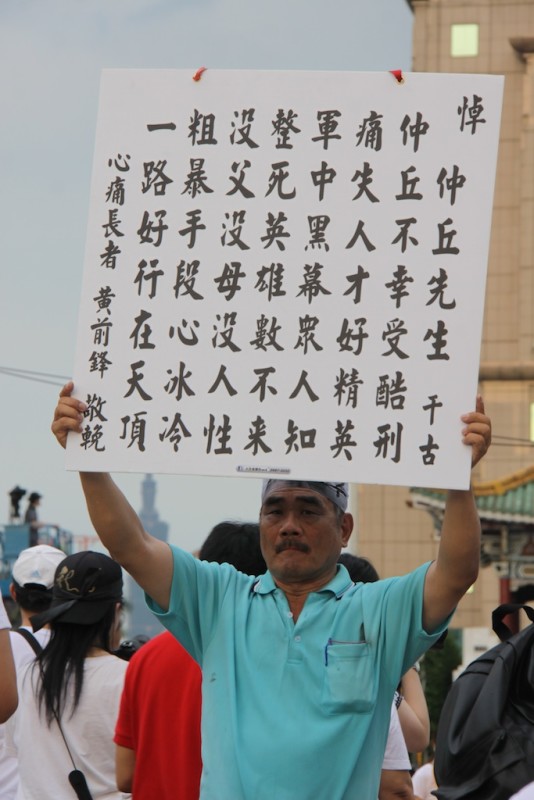 悼 仲丘先生 千古
仲丘不幸受酷刑
痛失人才好精英
軍中黑幕眾人知
整死英雄數不來
没父没母没人性
粗暴手段心冰冷
一路好行在天頂
心痛長者 黃前鋒 敬輓